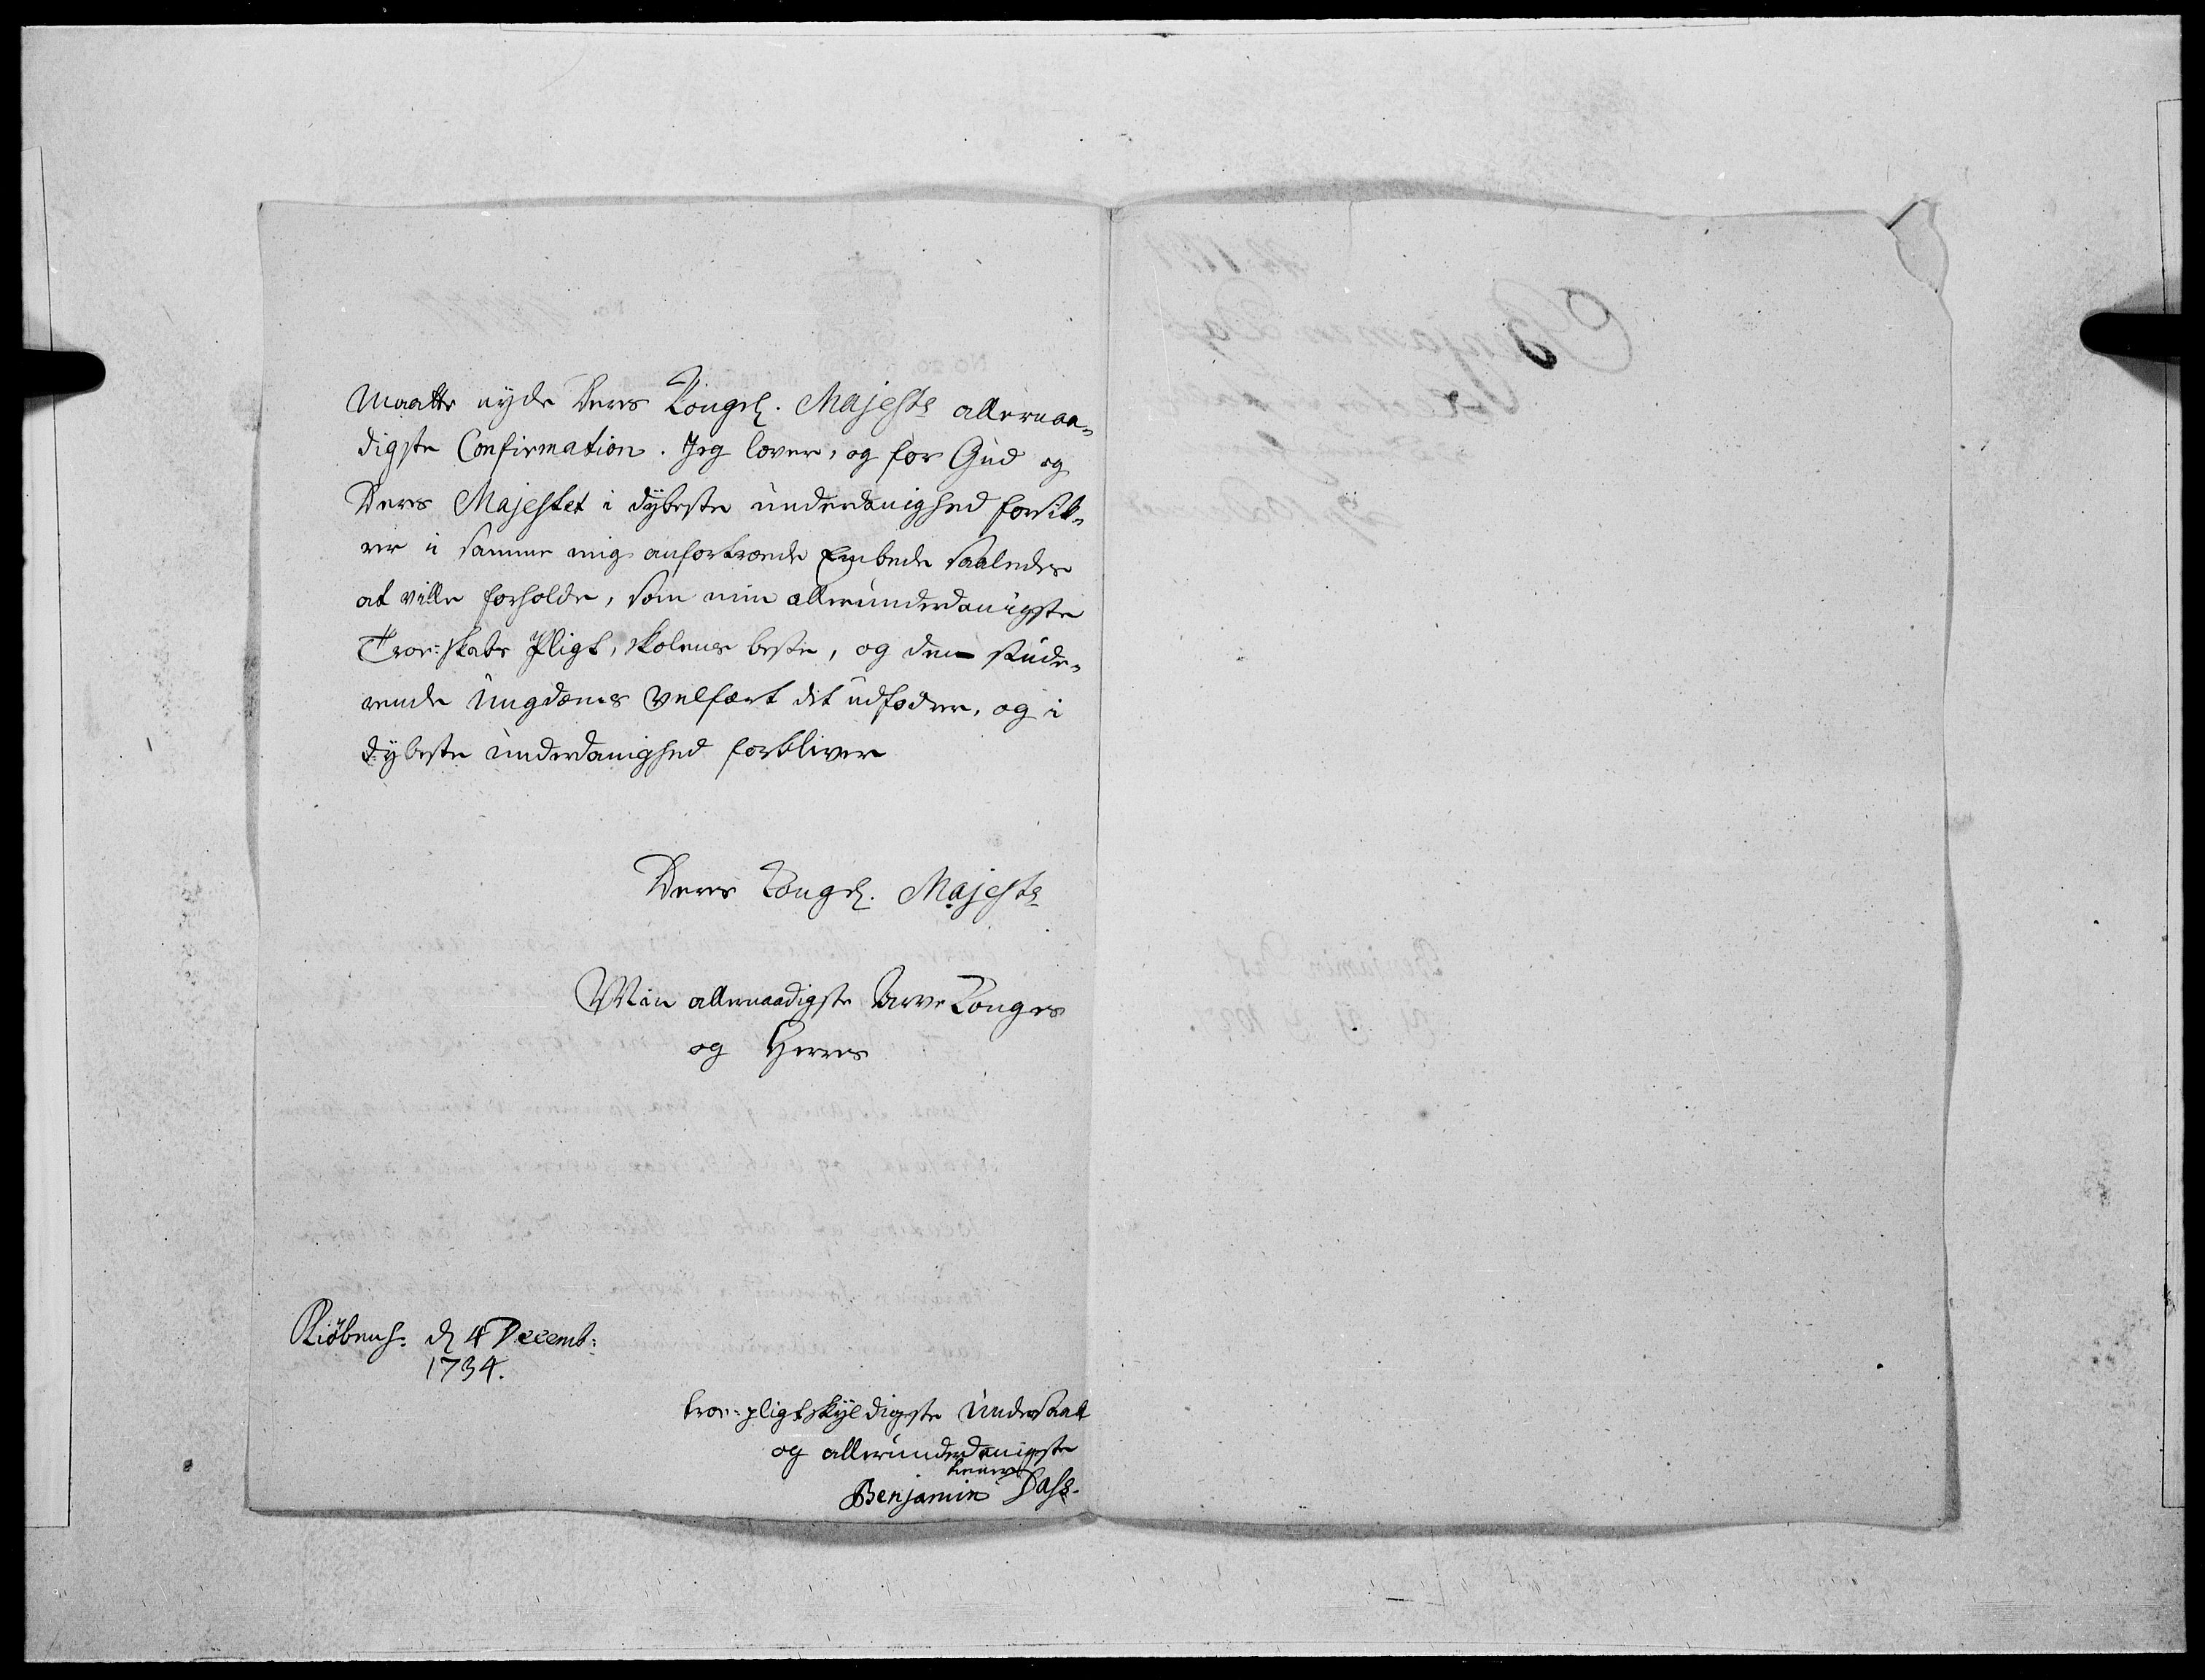 maatte nyde Deres Kongel. Majests allernaa-
digste Confirmation. Jeg lover, og for Gud og
Deres Majestet i dybeste underdanighed forsik-
rer i samme mig anfortroede Embede saaledes
at ville forholde, som min allerunderdanigste
Troe-skabs Pligt, skolenes beste, og den stude-
rende ungdoms velfært det udfodrer, og i
dybeste underdanighed forbliver
Deres Kongel. Majests
Min allernaadigste Arve Konges
og Herres
Kiøbenh. d 4 Decemb:
1734.
troe-pligtskyldigste Undersaat
og allerunderdanigste
tienere
Benjamin Dass.